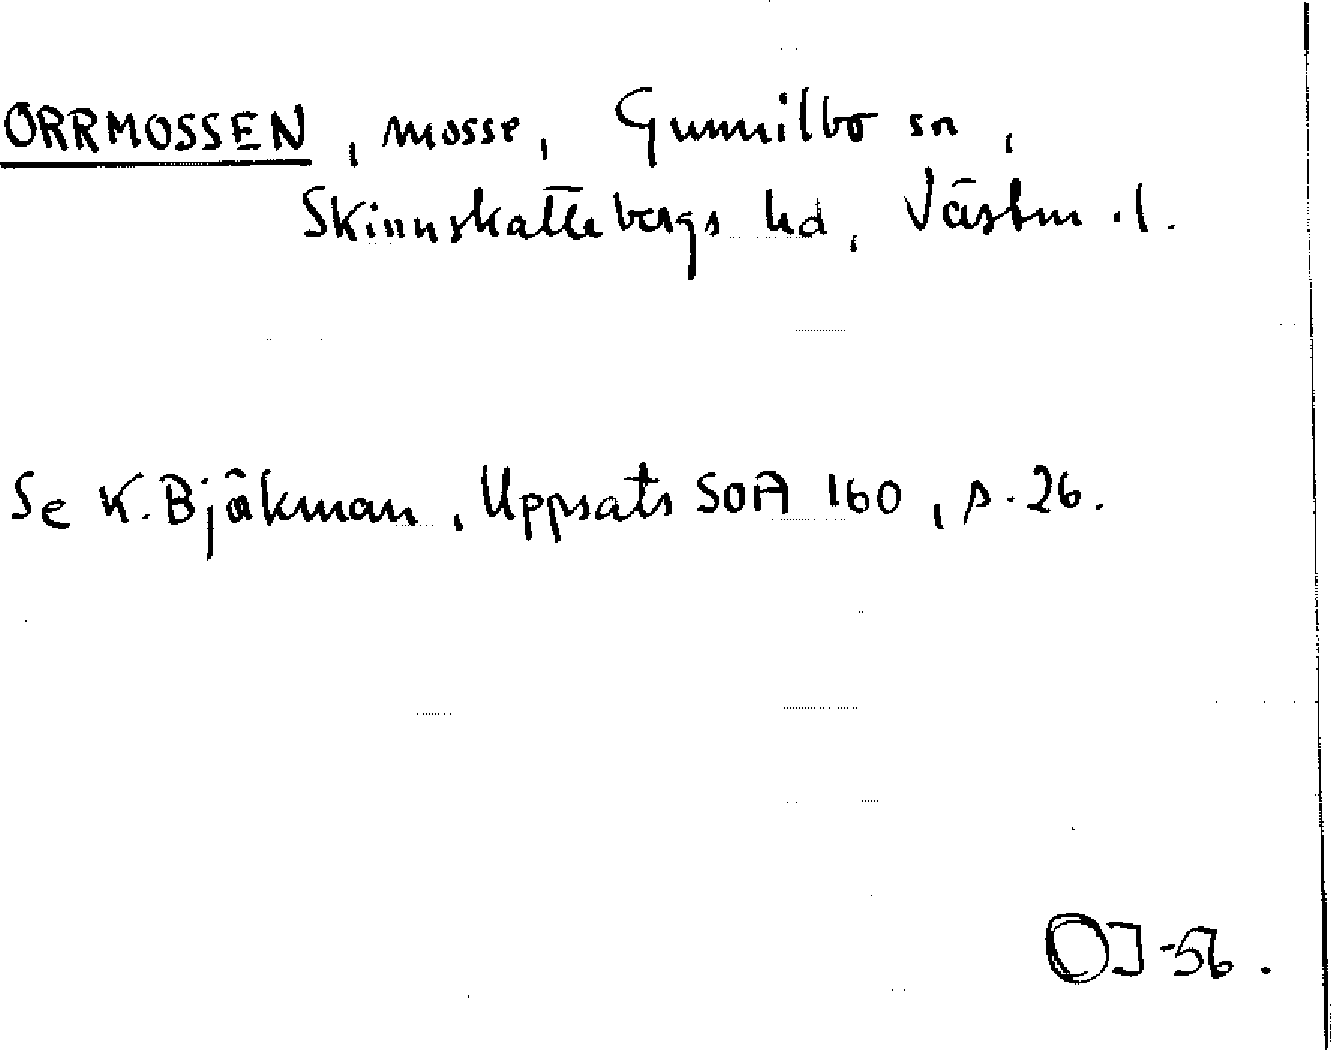 ORRMOSSEN, mosse, Gunnilbo sn,
Skinnskattebergs hd, Västm. l.
Se K. Bjäkman, Uppsats SOA 160, s. 26.
OJ -56.